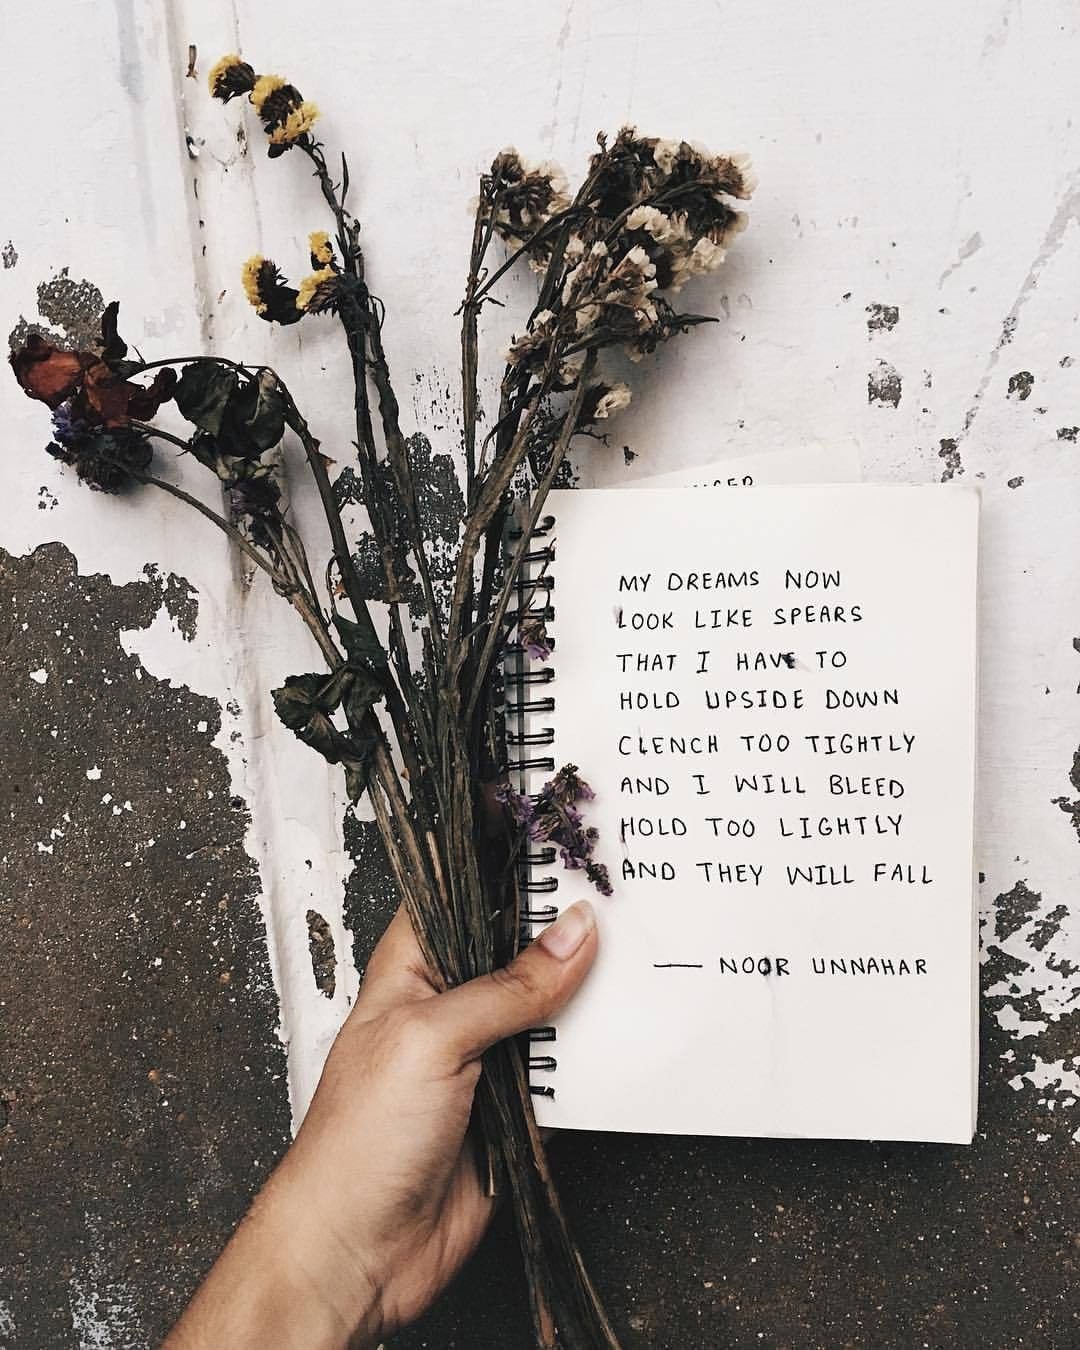 MY DREAMS NOW
LOOK LIKE SPEARS
THAT I HAVE TO
HOLD UPSIDE DOWN
CLENCH TOO TIGHTLY
AND I WILL BLEED
HOLD TOO LIGHTLY
AND THEY WILL FALL
— NOOR UNNAHAR